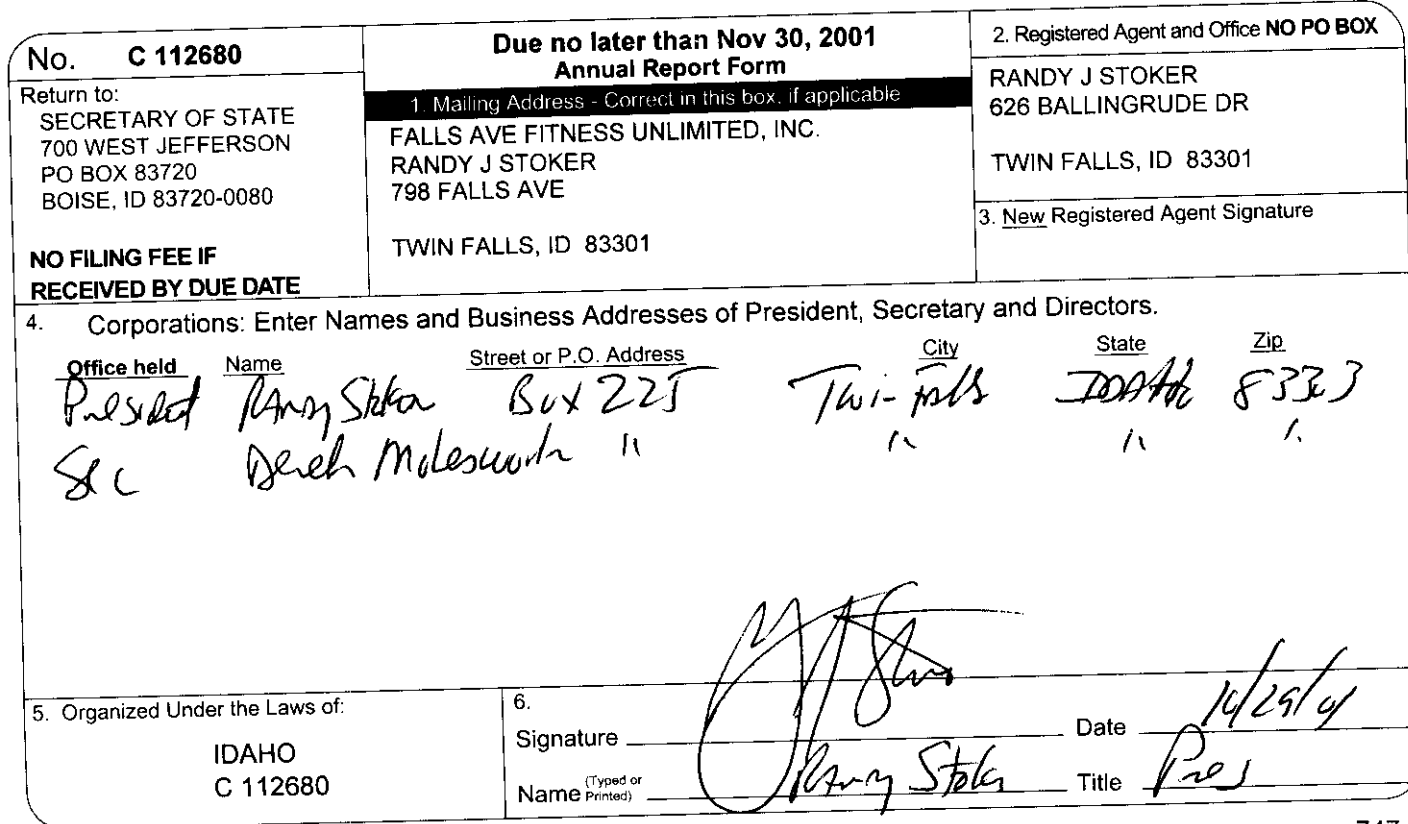 No. C 112680
Return to:
SECRETARY OF STATE
700 WEST JEFFERSON
PO BOX 83720
BOISE, ID 83720-0080
NO FILING FEE IF
RECEIVED BY DUE DATE
Due no later than Nov 30, 2001
Annual Report Form
1. Mailing Address - Correct in this box, if applicable
FALLS AVE FITNESS UNLIMITED, INC.
RANDY J STOKER
798 FALLS AVE
TWIN FALLS, ID 83301
2. Registered Agent and Office NO PO BOX
RANDY J STOKER
626 BALLINGRUDE DR
TWIN FALLS, ID 83301
3. New Registered Agent Signature
4. Corporations: Enter Names and Business Addresses of President, Secretary and Directors.
Office held Name Street or P.O. Address City State Zip
President Randy Stoker Box 225 Twin Falls Idaho 83303
Sec Derek Molesworth " " " "
5. Organized Under the Laws of:
IDAHO
C 112680
6.
Signature
Date 10/29/01
Name (Typed or Printed) Randy Stoker
Title Pres